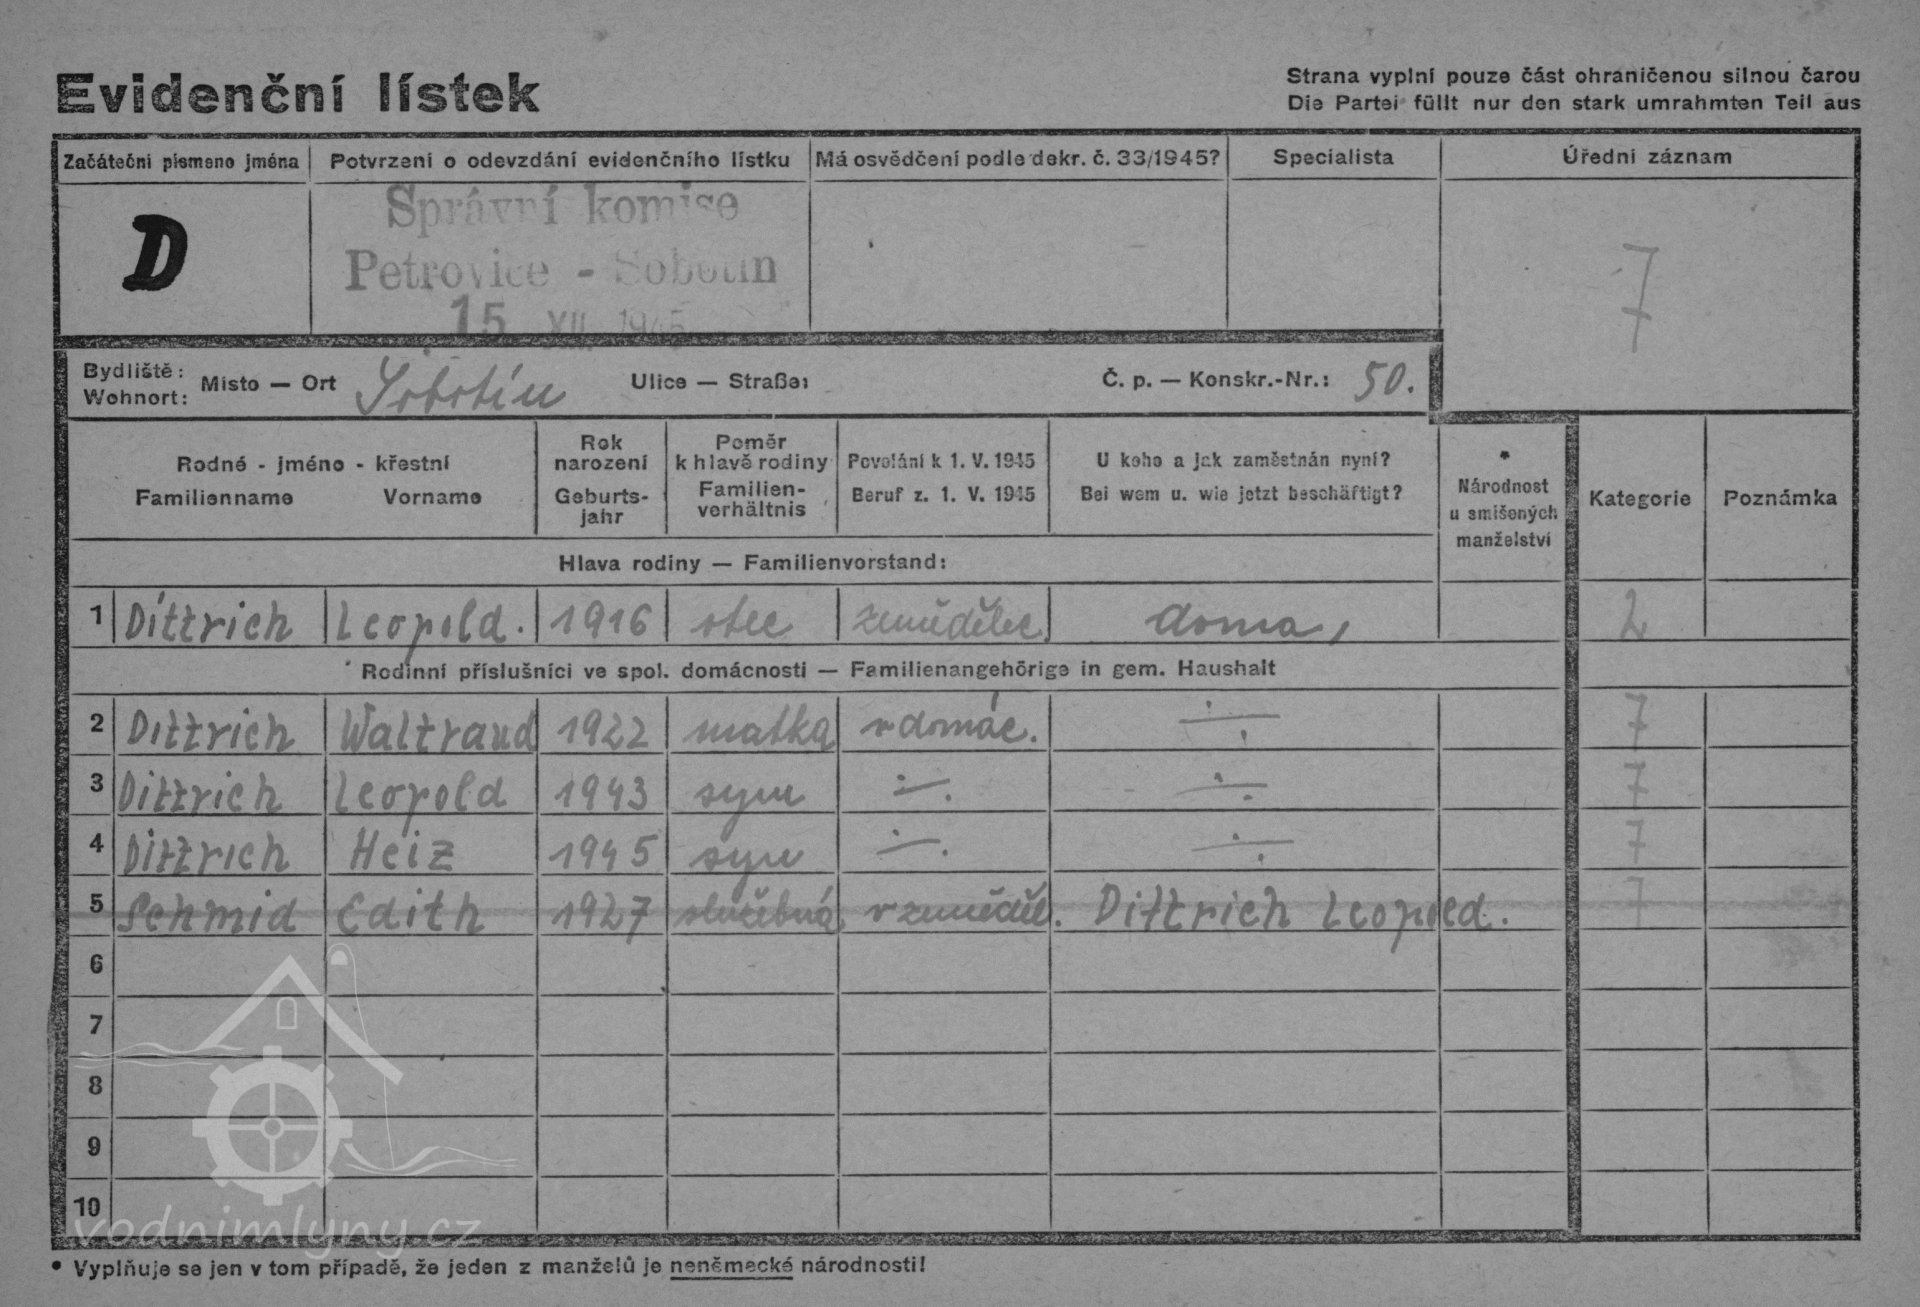 Evidenční lístek
Strana vyplní pouze část ohraničenou silnou čarou
Die Partei füllt nur den stark umrahmten Teil aus
Začáteční písmeno jména Potvrzení o odevzdání evidenčního lístku Má osvědčení podle dekr. č. 33/1945? Specialista Úřední záznam
D
Správní komise
Petrovice - Sobotín
15 XII. 1945
7
Bydliště:
Wohnort: Místo — Ort Sobotín Ulice — Straße: Č. p. — Konskr.-Nr.: 50.
Rodné - jméno - křestní
Familienname Vorname
Rok
narození
Geburts-
jahr
Poměr
k hlavě rodiny
Familien-
verhältnis
Povolání k 1. V. 1945
Beruf z. 1. V. 1945
U koho a jak zaměstnán nyní?
Bei wem u. wie jetzt beschäftigt?
*
Národnost
u smíšených
manželství
Kategorie
Poznámka
Hlava rodiny — Familienvorstand:
1 Dittrich Leopold. 1916 otec zemědělec doma, 2
Rodinní příslušníci ve spol. domácnosti — Familienangehörige in gem. Haushalt
2 Dittrich Waltraud 1922 matka v domác. ÷ 7
3 Dittrich Leopold 1943 syn ÷ ÷ 7
4 Dittrich Heiz 1945 syn ÷ ÷ 7
5 Schmid Edith 1927 služebná v zeměděl. Dittrich Leopold. 7
6
7
8
9
10
vodnimlyny.cz
* Vyplňuje se jen v tom případě, že jeden z manželů je neněmecké národnosti!